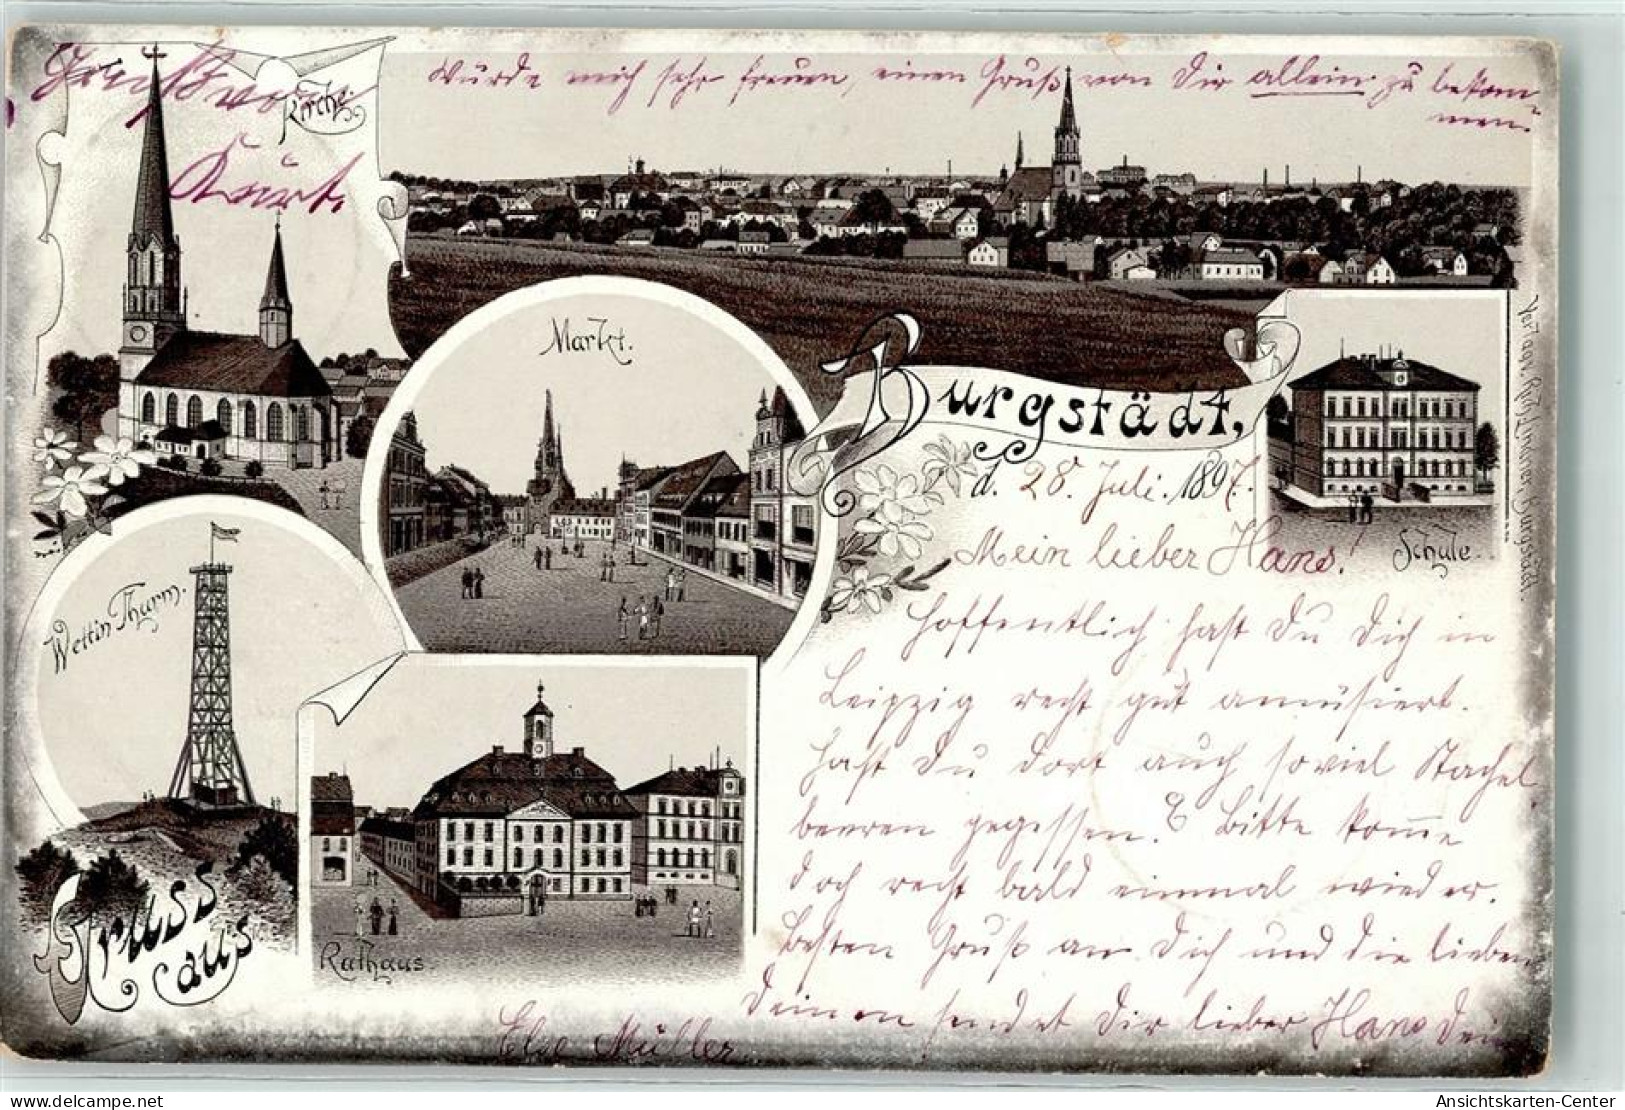 Gruß von
Kurt.
Würde mich sehr freuen, einen Gruß von Dir allein zu bekom-
men.
Kirche.
Markt.
Burgstädt,
d. 28. Juli. 1897.
Schule.
Verlag v. Rich. Zinner, Burgstädt.
Wettin Thurm.
Rathaus.
Gruss
aus
Mein lieber Hans!
Hoffentlich hast Du Dich in
Leipzig recht gut amüsiert.
Hast Du dort auch soviel Stachel
beeren gegessen? Bitte komme
doch recht bald einmal wieder.
Besten Gruß an Dich und die lieben
Deinen sendet Dir lieber Hans Dein
Else Müller
Ansichtskarten-Center.com
Ansichtskarten-Center